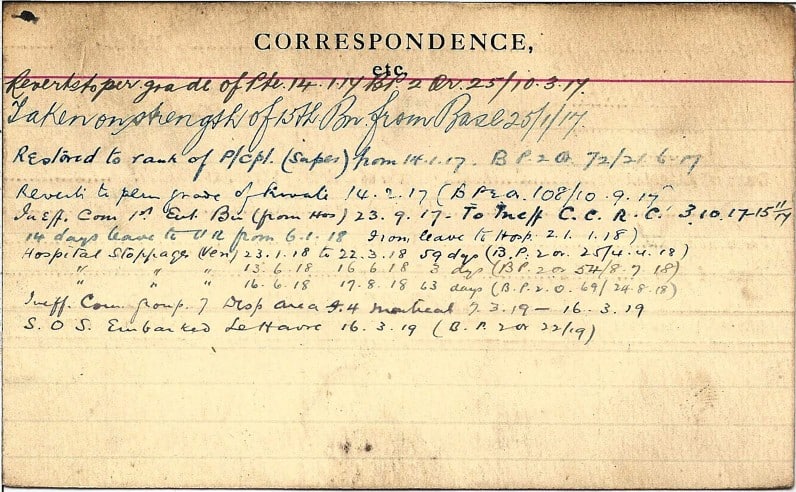 CORRESPONDENCE,
etc.
Reverts to per grade of Pte. 14.1.17 Bt. 2 Or. 25/10.3.17.
Taken on strength of 15th Bn from Base 25/1/17.
Restored to rank of P/Cpl. (Supes) from 14.1.17. B.P.2 Or. 72/21.6.17
Reverts to perm grade of Private 14.2.17 (B P 2 o. 108/10.9.17
Ineff. Com 1st Bn (from Hos) 23.9.17. To Ineff C.C.R.C. 3.10.17-15 11/17
14 days leave to U K from 6.1.18 From leave to Hosp. 21.1.18)
Hospital Stoppages (Ven) 23.1.18 to 22.3.18 59 dys (B.P.2 or. 25/4.4.18)
" " " 13.6.18 16.6.18 3 dys (B.P.2 or 54/8.7.18)
" " " 16.6.18 17.8.18 63 days (B.P.2.O. 69/24.8.18)
Ineff. Com group. 7 Disp area I.4 Montreal 7.3.19 — 16.3.19
S.O.S. Embarked Le Havre 16.3.19 (B.P.2 or 22/19)